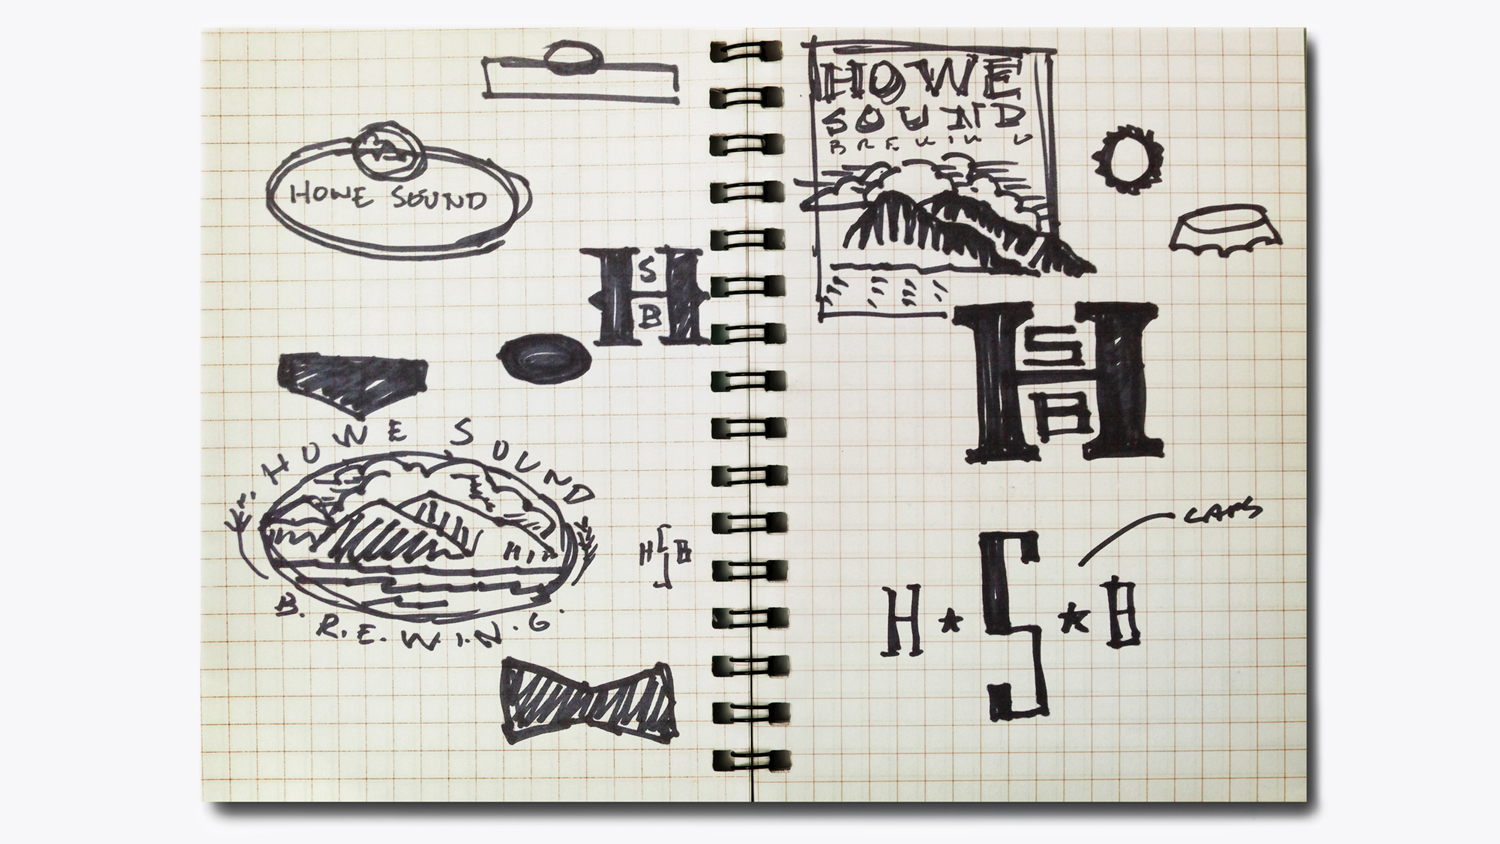 HOWE SOUND
S
H
B
HOWE SOUND
B.R.E.W.I.N.G.
H S B
HOWE
SOUND
BREWIN
S
H
B
CAPS
H ★ S ★ B